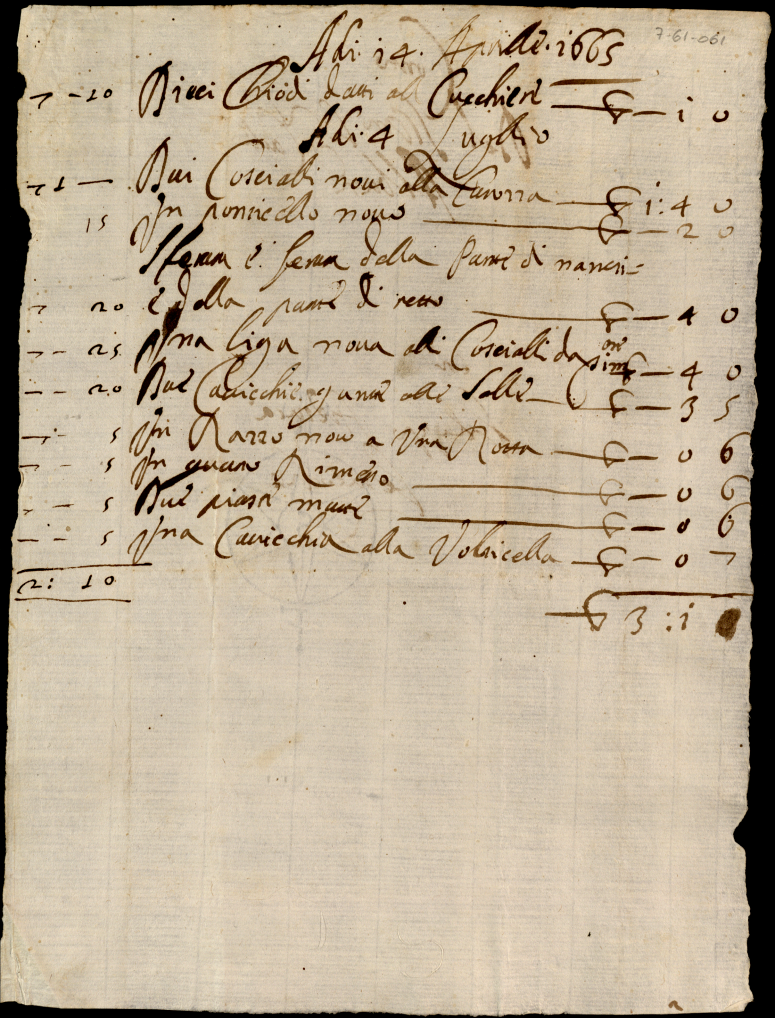 7-61-061
Adi 14. Aprille. 1665
7 - 10 Dieci Chiodi datti al Cucchiere — 1 0
Adi. 4 Luglio
7 1 — Dui Cosciali novi alla Carozza — 1: 4 0
15 Un ponticello novo — 2 0
sterza è sterza della Parte di nanzi=
7 20 è della parte di retto — 4 0
7 - 25 Una liga nova alli Cosciali da — 4 0
7 - 20 Due Cavicchie alle — 3 5
7 - 5 Un Razzo novo a Una Rotta — 0 6
7 - 5 Un quarto Rimesso — 0 6
7 - 5 Due piastre — 0 6
7 - 5 Una Cavicchia alla Volticella — 0 7
2: 10
3 : 1